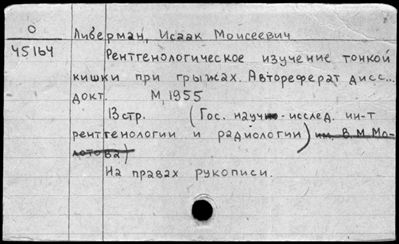 О
45164
Либерман, Исаак Моисеевич.
Рентгенологическое изучение тонкой
кишки при грыжах. Автореферат дисс...
докт. М, 1955
13 стр. (Гос. научн-исслед. ин-т
рентгенологии и радиологии) им. В.М.Мо-
лотова)
На правах рукописи.